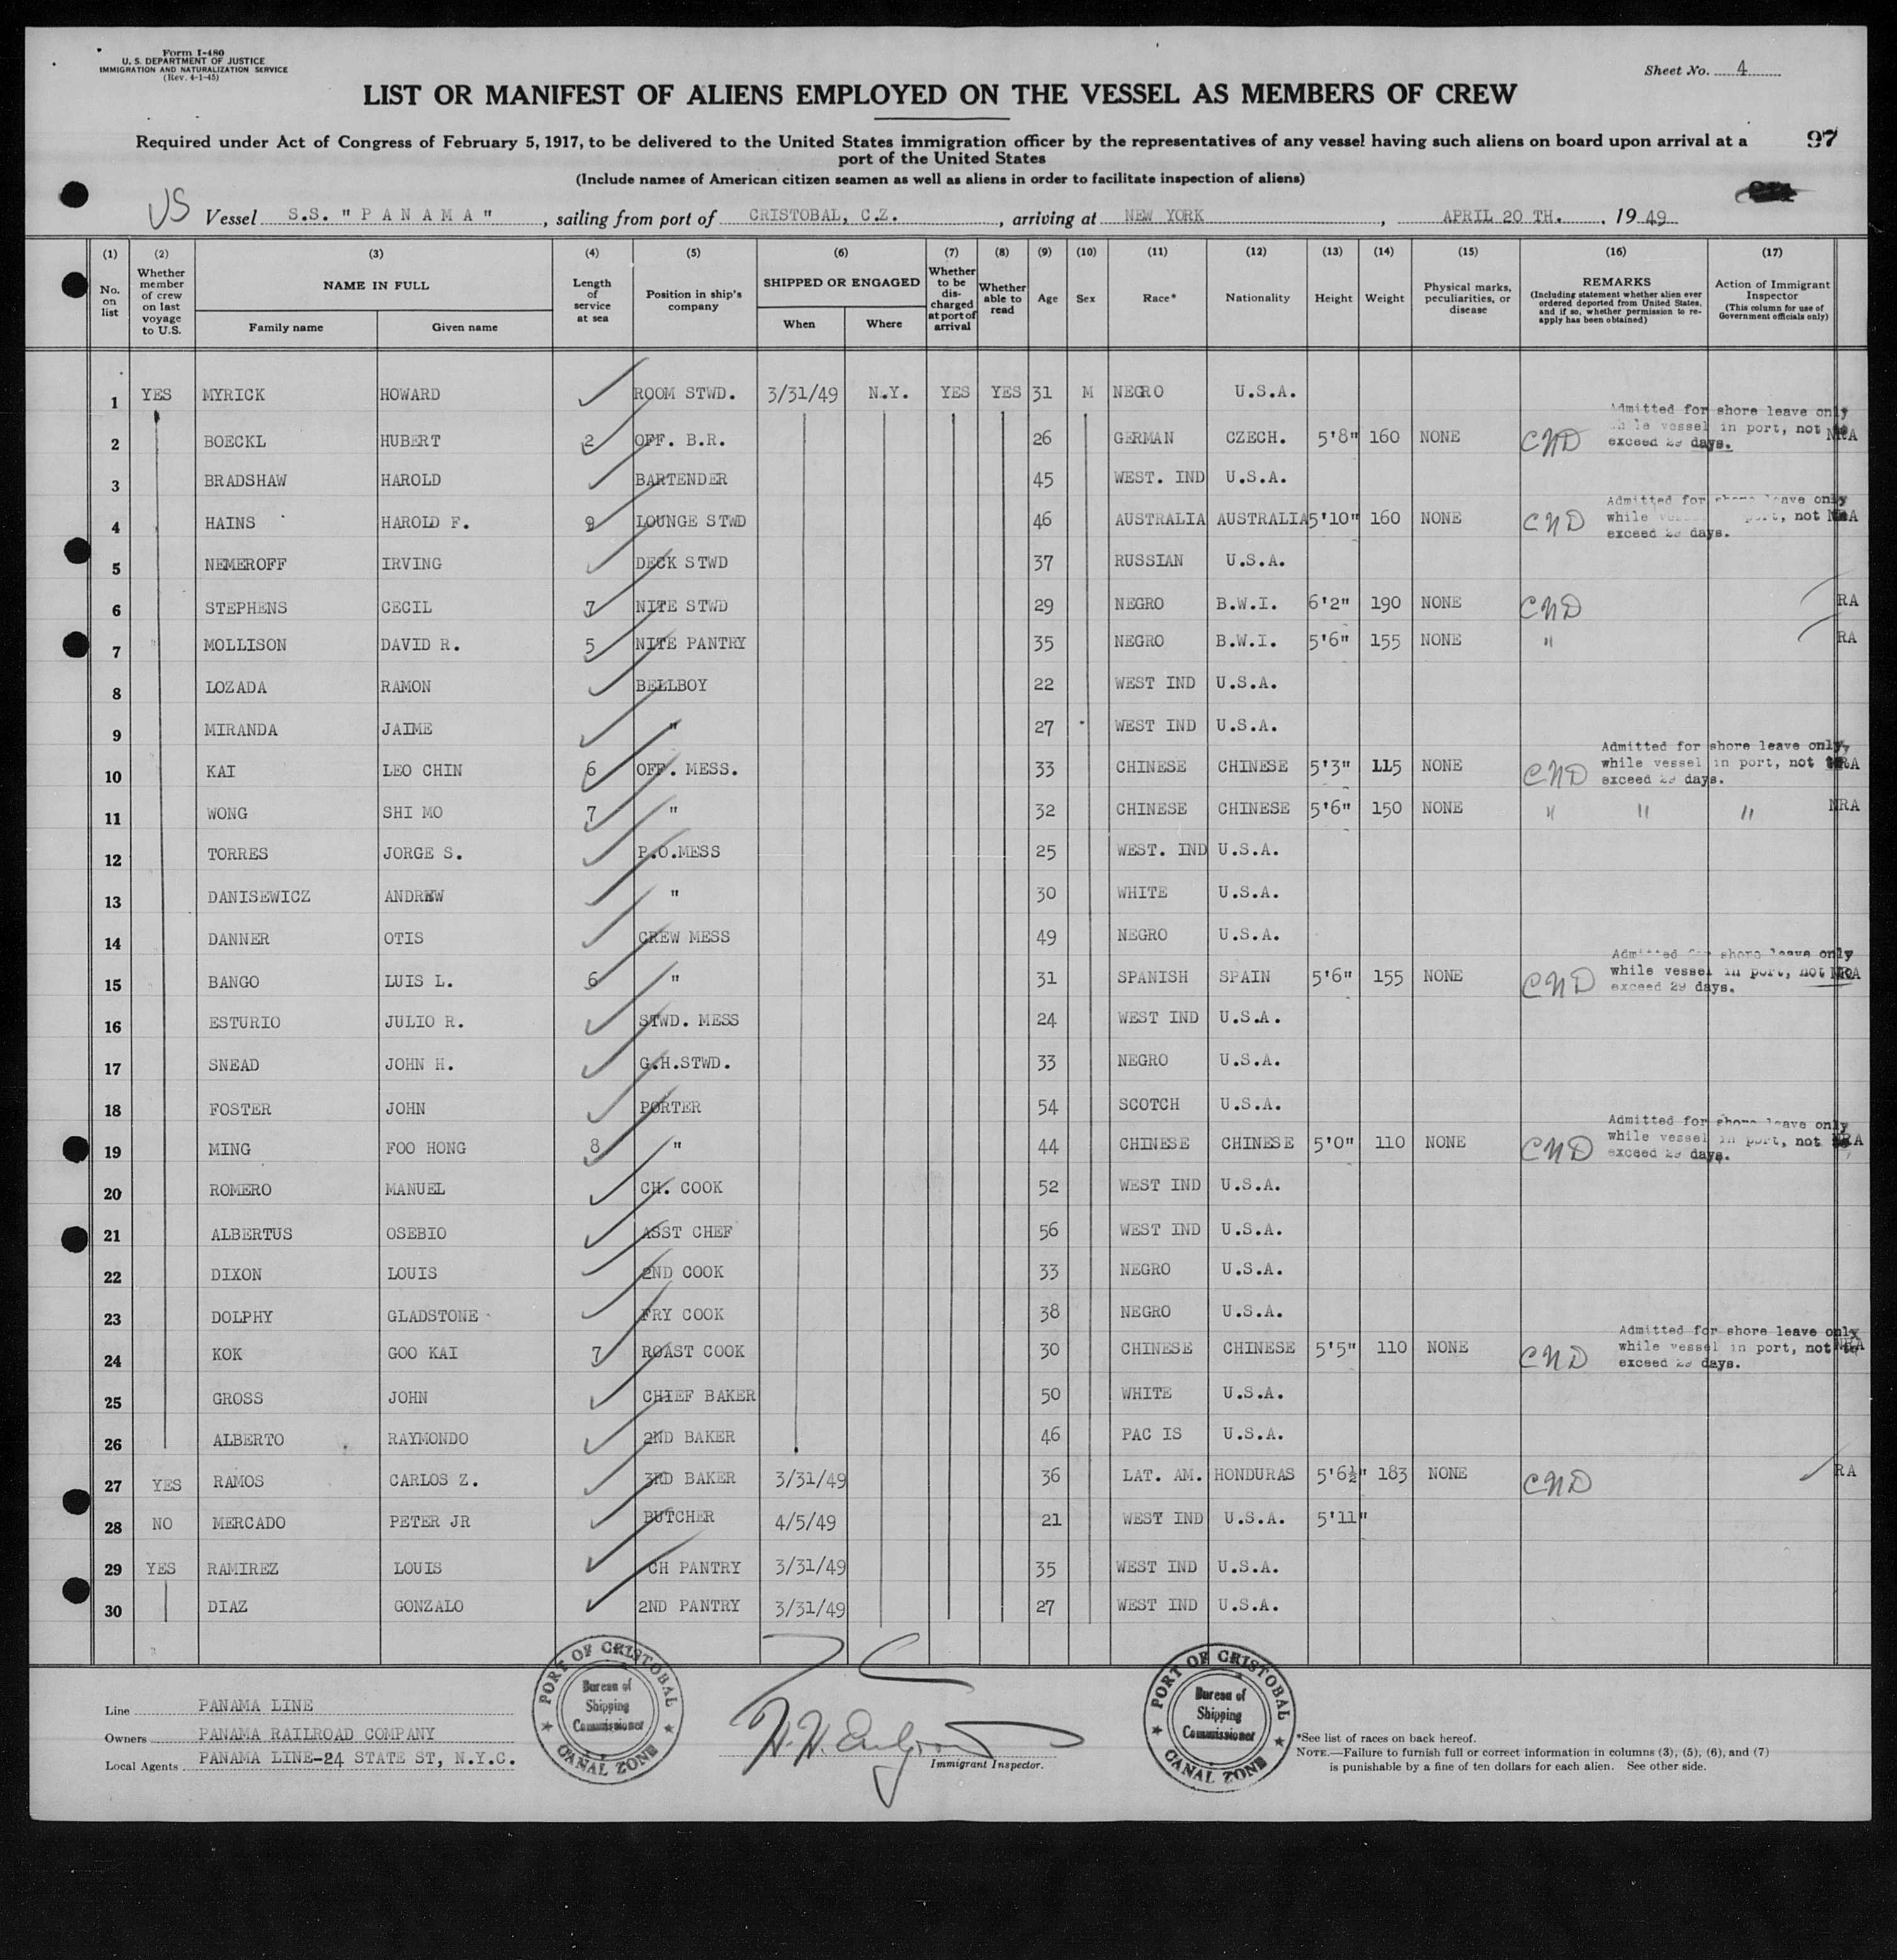 Form I-480
U. S. DEPARTMENT OF JUSTICE
IMMIGRATION AND NATURALIZATION SERVICE
(Rev. 4-1-45)
Sheet No. 4
LIST OR MANIFEST OF ALIENS EMPLOYED ON THE VESSEL AS MEMBERS OF CREW
Required under Act of Congress of February 5, 1917, to be delivered to the United States immigration officer by the representatives of any vessel having such aliens on board upon arrival at a
port of the United States
97
(Include names of American citizen seamen as well as aliens in order to facilitate inspection of aliens)
US Vessel S.S. " P A N A M A " , sailing from port of CRISTOBAL, C.Z. , arriving at NEW YORK , APRIL 20 TH. , 19 49
(1) (2) (3) (4) (5) (6) (7) (8) (9) (10) (11) (12) (13) (14) (15) (16) (17)
No. on list
Whether member of crew on last voyage to U.S.
NAME IN FULL
Family name
Given name
Length of service at sea
Position in ship's company
SHIPPED OR ENGAGED
When
Where
Whether to be discharged at port of arrival
Whether able to read
Age
Sex
Race*
Nationality
Height
Weight
Physical marks, peculiarities, or disease
REMARKS
(Including statement whether alien ever ordered deported from United States, and if so, whether permission to re-apply has been obtained)
Action of Immigrant Inspector
(This column for use of Government officials only)
1 YES MYRICK HOWARD ROOM STWD. 3/31/49 N.Y. YES YES 31 M NEGRO U.S.A.
2 BOECKL HUBERT 2 OFF. B.R. 26 GERMAN CZECH. 5'8" 160 NONE CND Admitted for shore leave only while vessel in port, not to exceed 29 days. NRA
3 BRADSHAW HAROLD BARTENDER 45 WEST. IND U.S.A.
4 HAINS HAROLD F. 9 LOUNGE STWD 46 AUSTRALIA AUSTRALIA 5'10" 160 NONE CND Admitted for shore leave only while vessel in port, not to exceed 29 days. NRA
5 NEMEROFF IRVING DECK STWD 37 RUSSIAN U.S.A.
6 STEPHENS CECIL 7 NITE STWD 29 NEGRO B.W.I. 6'2" 190 NONE CND RA
7 MOLLISON DAVID R. 5 NITE PANTRY 35 NEGRO B.W.I. 5'6" 155 NONE " RA
8 LOZADA RAMON BELLBOY 22 WEST IND U.S.A.
9 MIRANDA JAIME " 27 WEST IND U.S.A.
10 KAI LEO CHIN 6 OFF. MESS. 33 CHINESE CHINESE 5'3" 115 NONE CND Admitted for shore leave only while vessel in port, not to exceed 29 days. NRA
11 WONG SHI MO 7 " 32 CHINESE CHINESE 5'6" 150 NONE " " " NRA
12 TORRES JORGE S. P.O.MESS 25 WEST. IND U.S.A.
13 DANISEWICZ ANDREW " 30 WHITE U.S.A.
14 DANNER OTIS CREW MESS 49 NEGRO U.S.A.
15 BANGO LUIS L. 6 " 31 SPANISH SPAIN 5'6" 155 NONE CND Admitted for shore leave only while vessel in port, not to exceed 29 days. NRA
16 ESTURIO JULIO R. STWD. MESS 24 WEST IND U.S.A.
17 SNEAD JOHN H. G.H.STWD. 33 NEGRO U.S.A.
18 FOSTER JOHN PORTER 54 SCOTCH U.S.A.
19 MING FOO HONG 8 " 44 CHINESE CHINESE 5'0" 110 NONE CND Admitted for shore leave only while vessel in port, not to exceed 29 days. NRA
20 ROMERO MANUEL CH. COOK 52 WEST IND U.S.A.
21 ALBERTUS OSEBIO ASST CHEF 56 WEST IND U.S.A.
22 DIXON LOUIS 2ND COOK 33 NEGRO U.S.A.
23 DOLPHY GLADSTONE FRY COOK 38 NEGRO U.S.A.
24 KOK GOO KAI 7 ROAST COOK 30 CHINESE CHINESE 5'5" 110 NONE CND Admitted for shore leave only while vessel in port, not to exceed 29 days. NRA
25 GROSS JOHN CHIEF BAKER 50 WHITE U.S.A.
26 ALBERTO RAYMONDO 2ND BAKER 46 PAC IS U.S.A.
27 YES RAMOS CARLOS Z. 3RD BAKER 3/31/49 36 LAT. AM. HONDURAS 5'6½" 183 NONE CND RA
28 NO MERCADO PETER JR BUTCHER 4/5/49 21 WEST IND U.S.A. 5'11"
29 YES RAMIREZ LOUIS CH PANTRY 3/31/49 35 WEST IND U.S.A.
30 DIAZ GONZALO 2ND PANTRY 3/31/49 27 WEST IND U.S.A.
Line PANAMA LINE
Owners PANAMA RAILROAD COMPANY
Local Agents PANAMA LINE-24 STATE ST, N.Y.C.
PORT OF CRISTOBAL
Bureau of
Shipping
Commissioner
CANAL ZONE
Immigrant Inspector.
PORT OF CRISTOBAL
Bureau of
Shipping
Commissioner
CANAL ZONE
*See list of races on back hereof.
NOTE.—Failure to furnish full or correct information in columns (3), (5), (6), and (7)
is punishable by a fine of ten dollars for each alien. See other side.